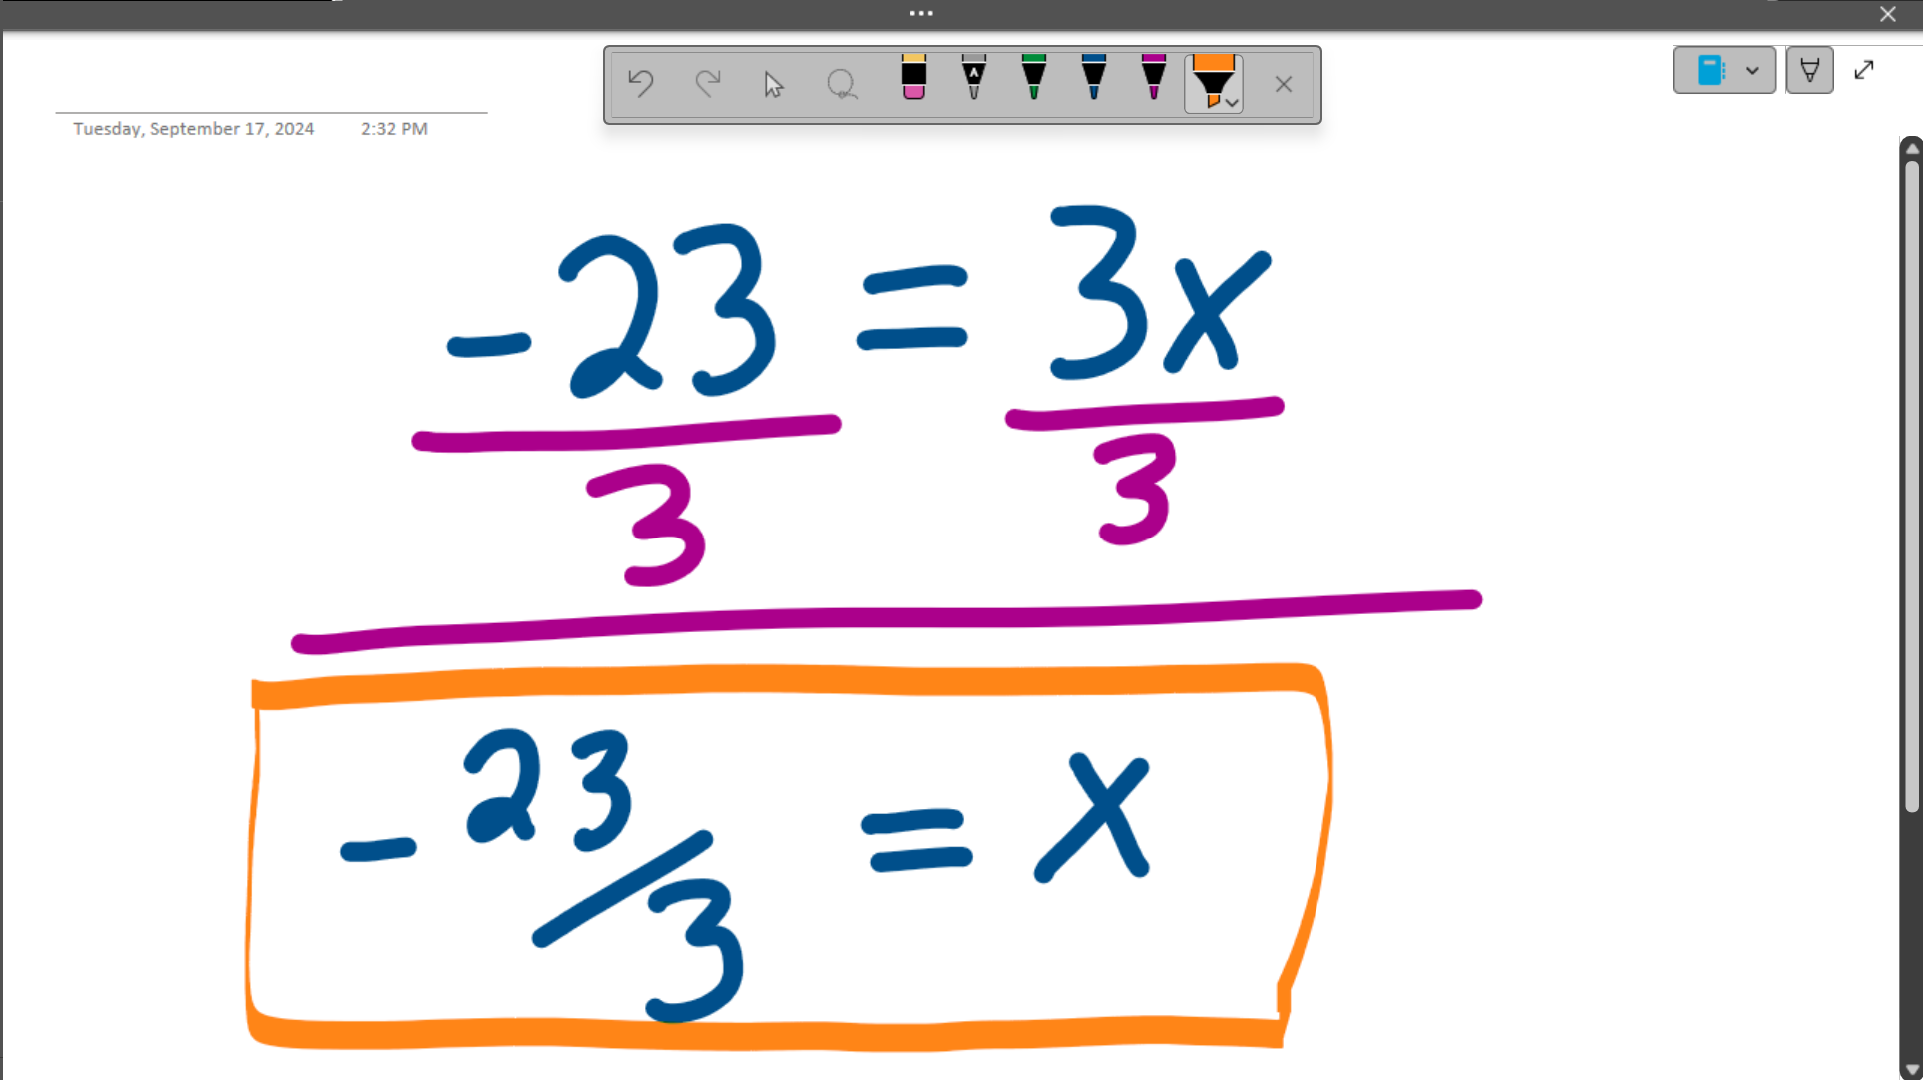 Tuesday, September 17, 2024 2:32 PM
-23 = 3x
3 3
-23/3 = x